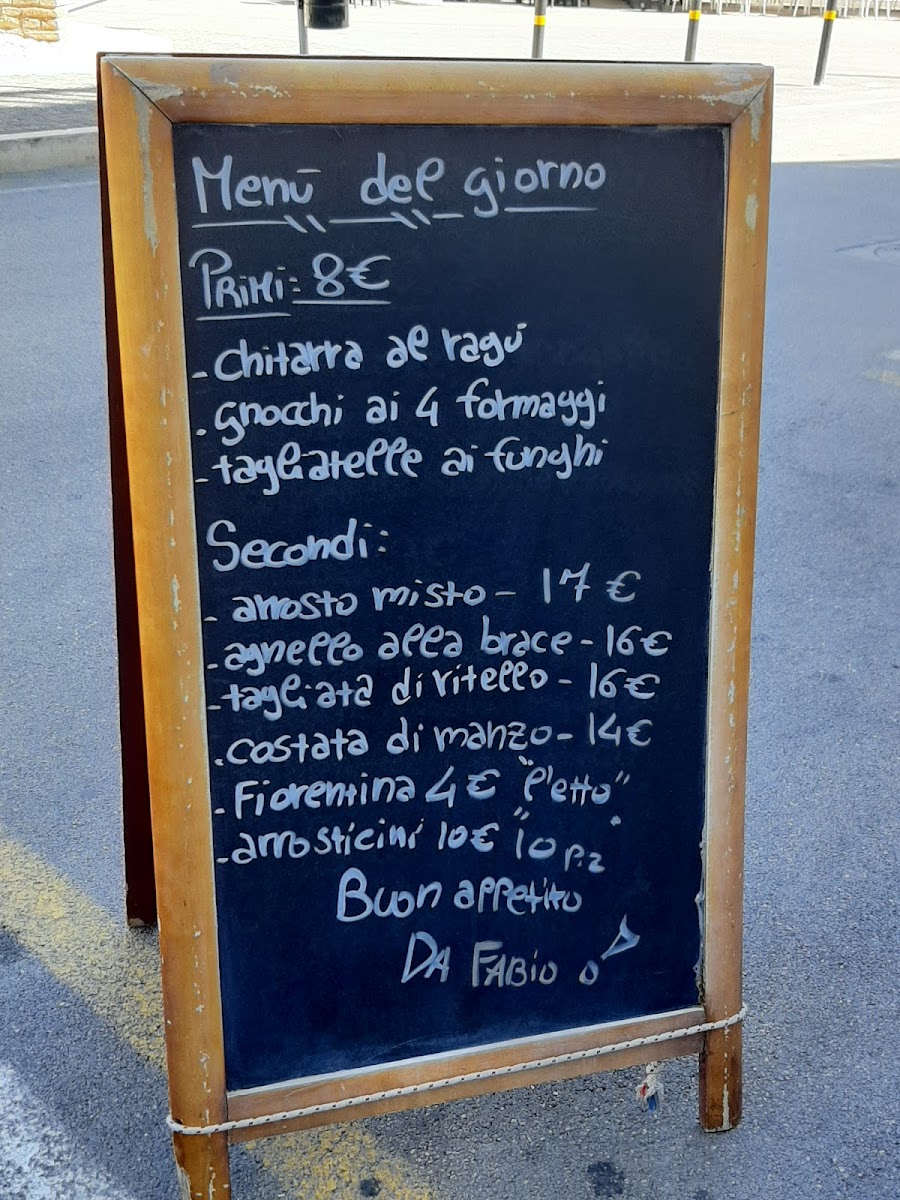 Menù del giorno
PRIMI: 8€
- chitarra al ragù
- gnocchi ai 4 formaggi
- tagliatelle ai funghi
Secondi:
- arrosto misto - 17 €
- agnello alla brace - 16€
- tagliata di vitello - 16€
- costata di manzo - 14€
- Fiorentina 4€ "l'etto"
- arrosticini 10€ "10 pz
Buon appetito
DA FABIO